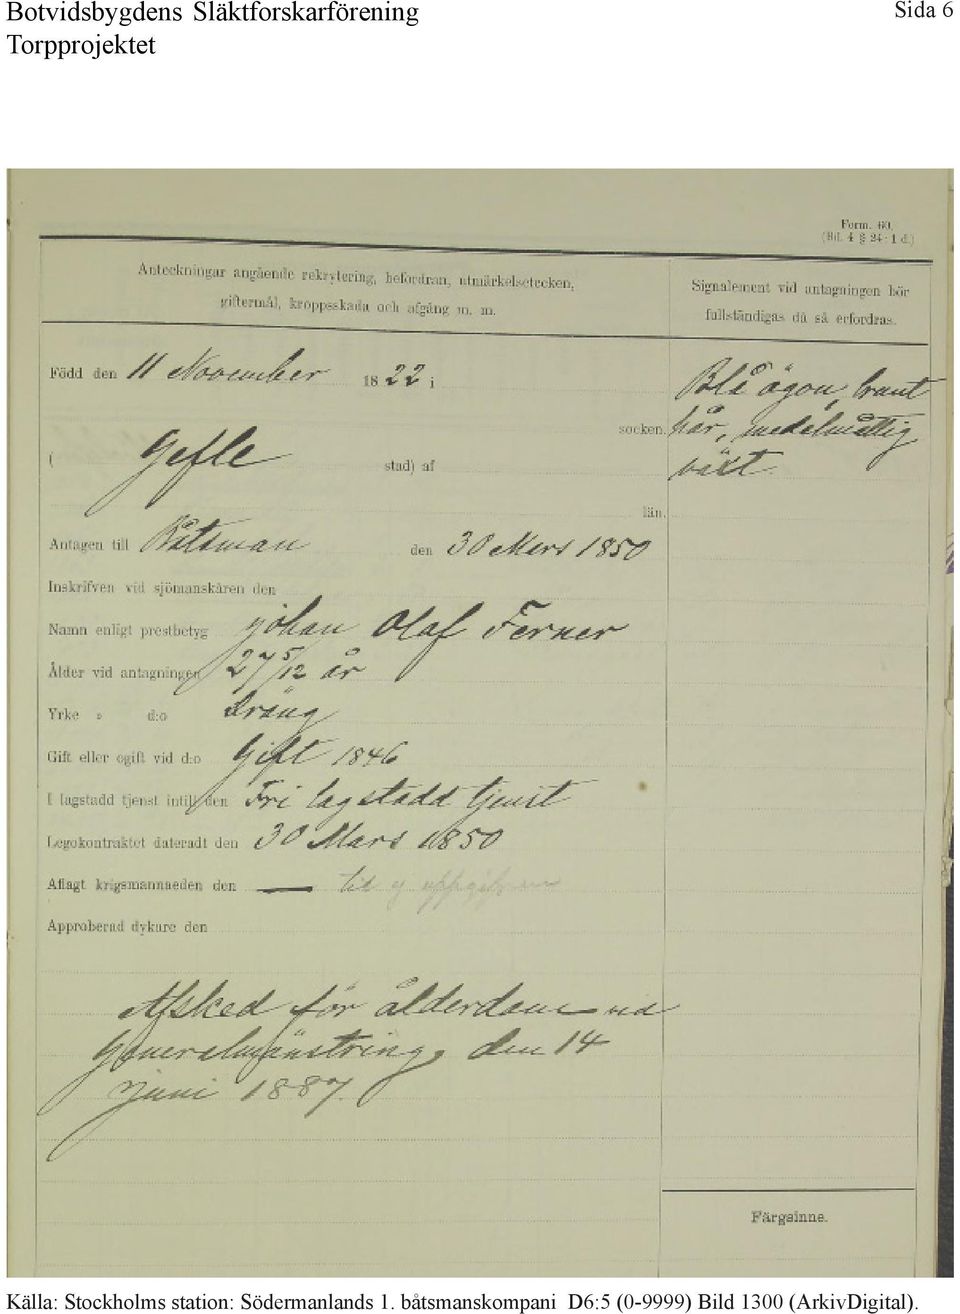 Botvidsbygdens Släktforskarförening
Sida 6
Torpprojektet
Form. 60.
(Bil. 4 § 24: 1 d.)
Anteckningar angående rekrytering, befordran, utmärkelsetecken,
giftermål, kroppsskada och afgång m. m.
Signalement vid antagningen bör
fullständigas då så erfordras.
Född den 11 November 1822 i
Blå ögon, brunt
socken.
hår, medelmåttig
( Gefle stad) af
växt
län.
Antagen till Båtsman den 30 Mars 1850
Inskrifven vid sjömanskåren den
Namn enligt prestbetyg Johan Olaf Ferner
Ålder vid antagningen 27 5/12 år
Yrke » d:o Dräng
Gift eller ogift vid d:o Gift 1846
I lagstadd tjenst intill den Fri lagstadd tjenst
Legokontraktet dateradt den 30 Mars 1850
Aflagt krigsmannaeden den — tid ej uppgifven
Approberad dykare den
Afsked för ålderdom vid
Generalmönstring den 14
Juni 1887.
Färgsinne.
Källa: Stockholms station: Södermanlands 1. båtsmanskompani D6:5 (0-9999) Bild 1300 (ArkivDigital).